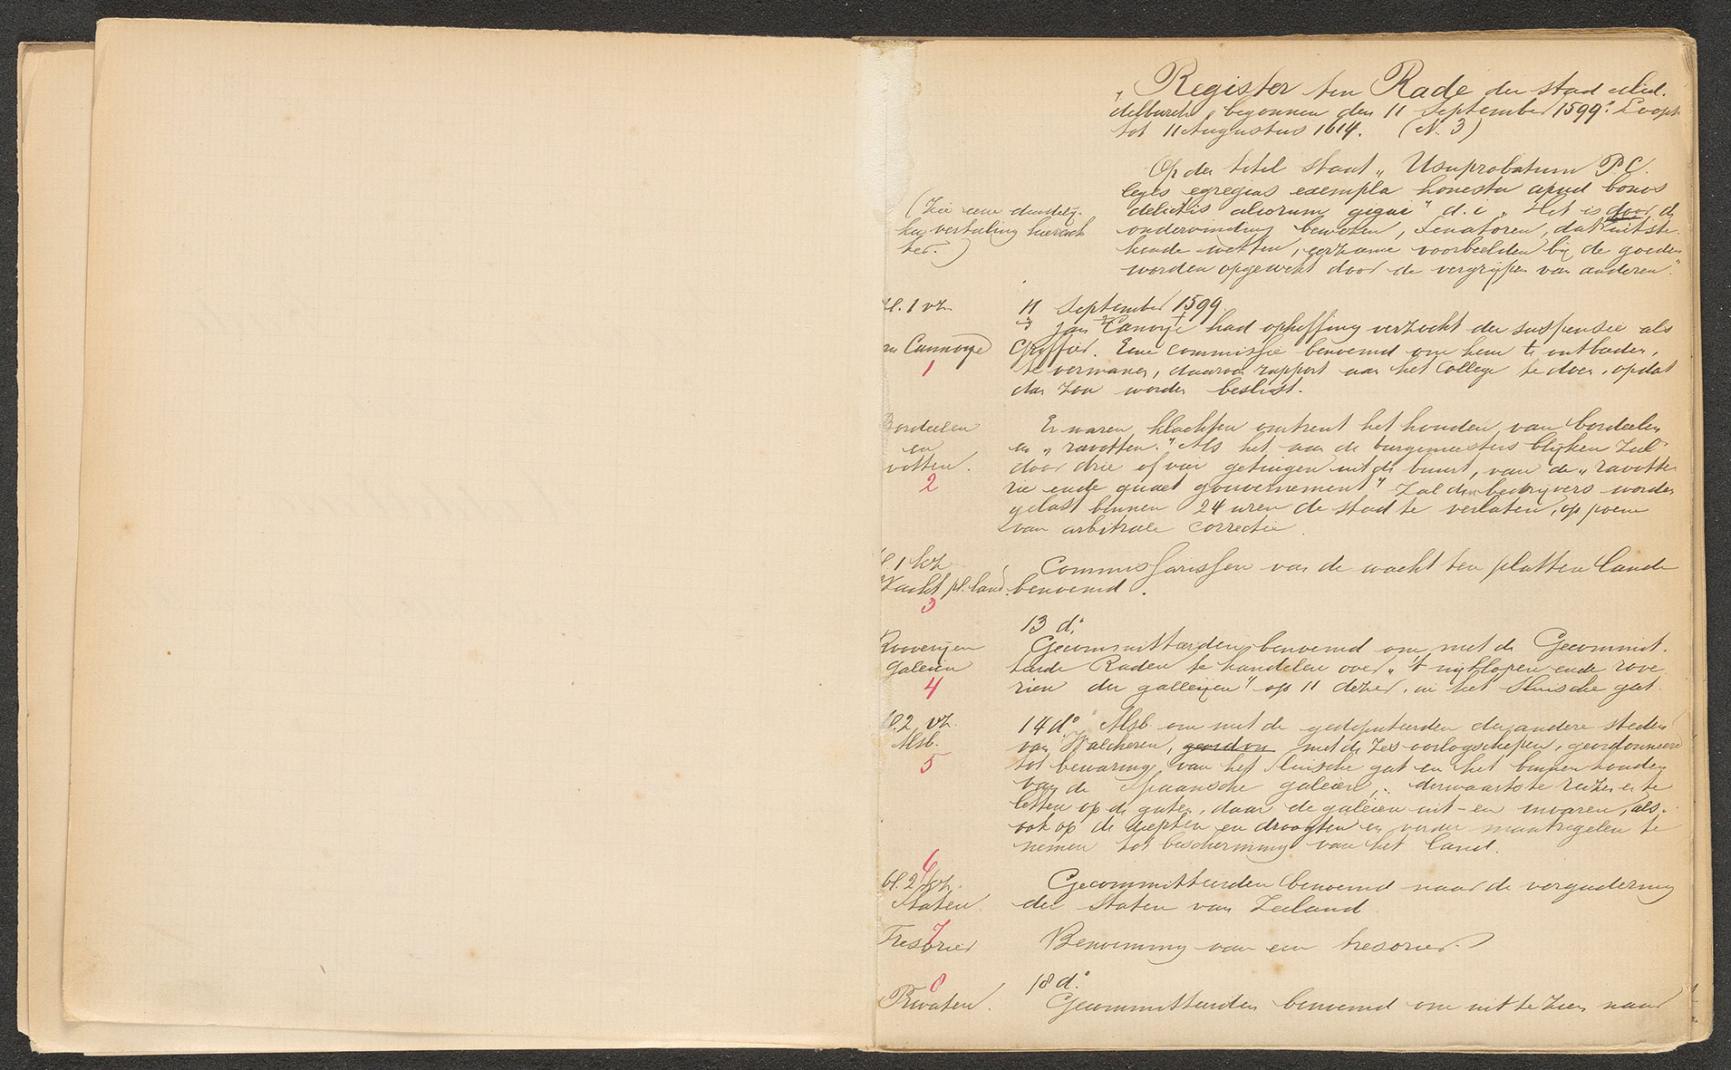 „Register ten Rade der stad Mid-
delburch, begonnen den 11 September 1599". Loopt
tot 11 Augustus 1614. (N. 3)
Op den titel staat „Usu probatum P.C.
leges egregias exempla honesta apud bonos
delictis aliorum gigni" d.i. „Het is door de
ondervinding bewezen, Senatoren, dat uitste-
kende wetten, eerzame voorbeelden bij de goeden
worden opgewekt door de vergrijpen van anderen".
(Zie eene duidelij-
ker vertaling hierach-
ter.)
bl. 1 vz. 11 September 1599
Jan Canoije had opheffing verzocht der suspensie als
Cannoije Griffier. Eene commissie benoemd om hem te ontbieden,
1 te vermanen, daarvan rapport aan het College te doen, opdat
dan zou worden beslist.
Bordeelen Er waren klachten omtrent het houden van bordeelen
en en „ravotten." Als het aan de burgemeesters blijken zal
votten. door drie of vier getuigen uit de buurt, van de „ravotte-
2 rie ende quaet gouvernement" zal den bedrijvers worden
gelast binnen 24 uren de stad te verlaten, op poene
van arbitrale correctie.
bl. 1 kz. Commissarissen van de wacht ten platten lande
Wacht pl. land. benoemd.
3
13 do.
Rooverijen Gecommitteerden benoemd om met de Gecommit-
galeien teerde Raden te handelen over „'t uytloopen ende rove-
4 rien der galleijen" op 11 dezer, in het Sluische gat.
bl. 2 vz. 14 do. Alsb. om met de gedeputeerden der andere steden
Alsb. van Walcheren, met de zes oorlogschepen, geordonneerd
5 tot bewaring van het Sluische gat en het binnenhouden
van de Spaansche galeien, derwaarts te reizen en te
letten op de gaten, daar de galeien uit- en invaren, als-
ook op de diepten en droogten en verder maatregelen te
nemen tot bescherming van het land.
6
bl. 2 kz. Gecommitteerden benoemd naar de vergadering
Staten. der Staten van Zeeland.
7
Tresorier Benoeming van een tresorier.
8 18 do.
Privaten. Gecommitteerden benoemd om uit te zien naar